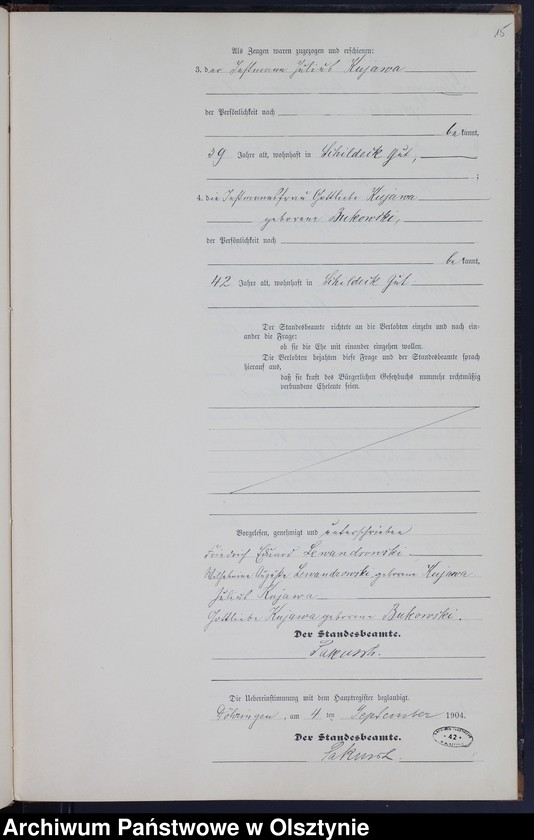 15
Als Zeugen waren zugezogen und erschienen:
3. der Instmann Julius Kujawa
der Persönlichkeit nach
be kannt,
39 Jahre alt, wohnhaft in Schildeck Gut,
;
4. die Instmannsfrau Gottliebe Kujawa
geborene Bukowski,
der Persönlichkeit nach
be kannt,
42 Jahre alt, wohnhaft in Schildeck Gut
Der Standesbeamte richtete an die Verlobten einzeln und nach ein-
ander die Frage:
ob sie die Ehe mit einander eingehen wollen.
Die Verlobten bejahten diese Frage und der Standesbeamte sprach
hierauf aus,
daß sie kraft des Bürgerlichen Gesetzbuchs nunmehr rechtmäßig
verbundene Eheleute seien.
Vorgelesen, genehmigt und unterschrieben
Friedrich Eduard Lewandowski
Wilhelmine Auguste Lewandowski geborene Kujawa
Julius Kujawa
Gottliebe Kujawa geborene Bukowski.
Der Standesbeamte.
Sakusch.
Die Uebereinstimmung mit dem Hauptregister beglaubigt.
Döhringen, am 4 ten September 1904.
Der Standesbeamte.
Sakusch.
42
Archiwum Państwowe w Olsztynie